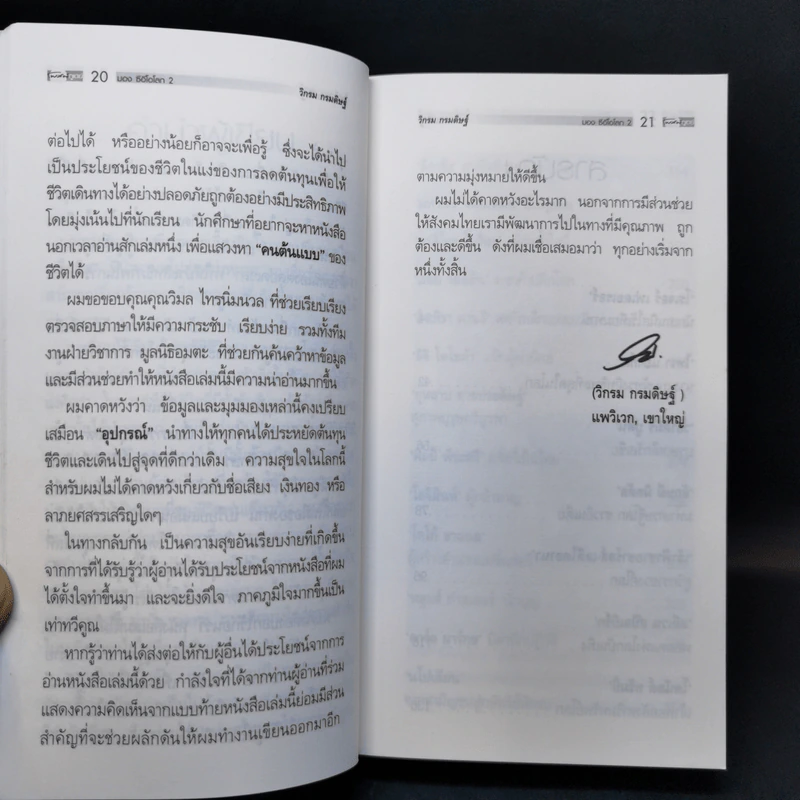 20 มอง ซีอีโอโลก 2
วิกรม กรมดิษฐ์
ต่อไปได้ หรืออย่างน้อยก็อาจจะเพื่อรู้ ซึ่งจะได้นำไป
เป็นประโยชน์ของชีวิตในแง่ของการลดต้นทุนเพื่อให้
ชีวิตเดินทางได้อย่างปลอดภัยถูกต้องอย่างมีประสิทธิภาพ
โดยมุ่งเน้นไปที่นักเรียน นักศึกษาที่อยากจะหาหนังสือ
นอกเวลาอ่านสักเล่มหนึ่ง เพื่อแสวงหา “คนต้นแบบ” ของ
ชีวิตได้
ผมขอขอบคุณคุณวิมล ไทรนิ่มนวล ที่ช่วยเรียบเรียง
ตรวจสอบภาษาให้มีความกระชับ เรียบง่าย รวมทั้งทีม
งานฝ่ายวิชาการ มูลนิธิอมตะ ที่ช่วยกันค้นคว้าหาข้อมูล
และมีส่วนช่วยทำให้หนังสือเล่มนี้มีความน่าอ่านมากขึ้น
ผมคาดหวังว่า ข้อมูลและมุมมองเหล่านี้คงเปรียบ
เสมือน “อุปกรณ์” นำทางให้ทุกคนได้ประหยัดต้นทุน
ชีวิตและเดินไปสู่จุดที่ดีกว่าเดิม ความสุขใจในโลกนี้
สำหรับผมไม่ได้คาดหวังเกี่ยวกับชื่อเสียง เงินทอง หรือ
ลาภยศสรรเสริญใดๆ
ในทางกลับกัน เป็นความสุขอันเรียบง่ายที่เกิดขึ้น
จากการที่ได้รับรู้ว่าผู้อ่านได้รับประโยชน์จากหนังสือที่ผม
ได้ตั้งใจทำขึ้นมา และจะยิ่งดีใจ ภาคภูมิใจมากขึ้นเป็น
เท่าทวีคูณ
หากรู้ว่าท่านได้ส่งต่อให้กับผู้อื่นได้ประโยชน์จากการ
อ่านหนังสือเล่มนี้ด้วย กำลังใจที่ได้จากท่านผู้อ่านที่ร่วม
แสดงความคิดเห็นจากแบบท้ายหนังสือเล่มนี้ย่อมมีส่วน
สำคัญที่จะช่วยผลักดันให้ผมทำงานเขียนออกมาอีก
วิกรม กรมดิษฐ์
มอง ซีอีโอโลก 2 21
ตามความมุ่งหมายให้ดีขึ้น
ผมไม่ได้คาดหวังอะไรมาก นอกจากการมีส่วนช่วย
ให้สังคมไทยเรามีพัฒนาการไปในทางที่มีคุณภาพ ถูก
ต้องและดีขึ้น ดังที่ผมเชื่อเสมอมาว่า ทุกอย่างเริ่มจาก
หนึ่งทั้งสิ้น
(วิกรม กรมดิษฐ์ )
แพวิเวก, เขาใหญ่